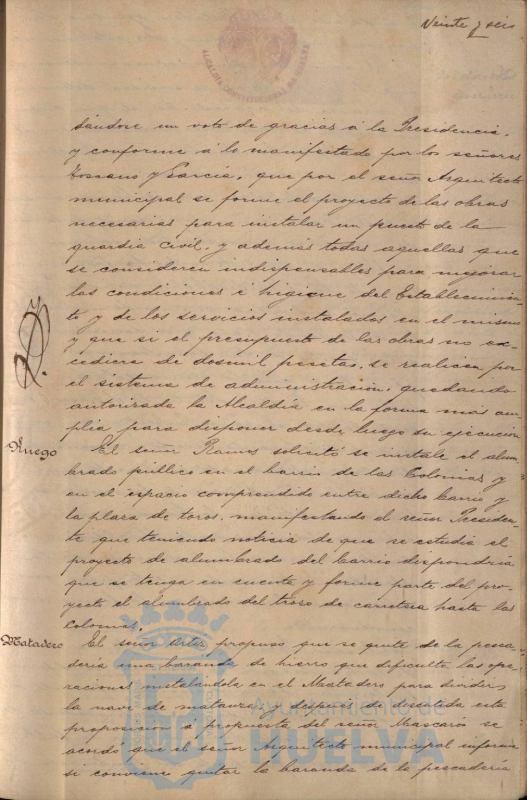 Veinte y seis
ALCALDIA CONSTITUCIONAL DE HUELVA
dándose un voto de gracias á la Presidencia,
y conforme á lo manifestado por los señores
Toscano y García, que por el señor Arquitecto
municipal se forme el proyecto de las obras
necesarias para instalar un puesto de la
guardia civil, y además todas aquellas que
se consideren indispensables para mejorar
las condiciones é higiene del Establecimien
to y de los servicios instalados en el mismo
y que si el presupuesto de las obras no ex-
cediere de dosmil pesetas, se realicen por
el sistema de administración, quedando
autorizada la Alcaldía en la forma más am
plia para disponer desde luego su ejecución
Ruego
El señor Ramos solicitó se instale el alum
brado público en el barrio de las Colonias y
en el espacio comprendido entre dicho barrio y
la plaza de toros, manifestando el señor Presiden
te que teniendo noticia de que se estudia el
proyecto de alumbrado del barrio dispondría
que se tenga en cuenta y forme parte del pro-
yecto el alumbrado del trozo de carretera hasta las
Colonias.
Matadero
El señor propuso que se quite de la pesca-
dería una baranda de hierro que dificulta las ope-
raciones instalándola en el Matadero para dividir
la nave de matanza y después de discutida esta
proposición á propuesta del señor Mascarós se
acordó que el señor Arquitecto municipal informe
si conviene quitar la baranda de la pescadería
Ayuntamiento de
HUELVA